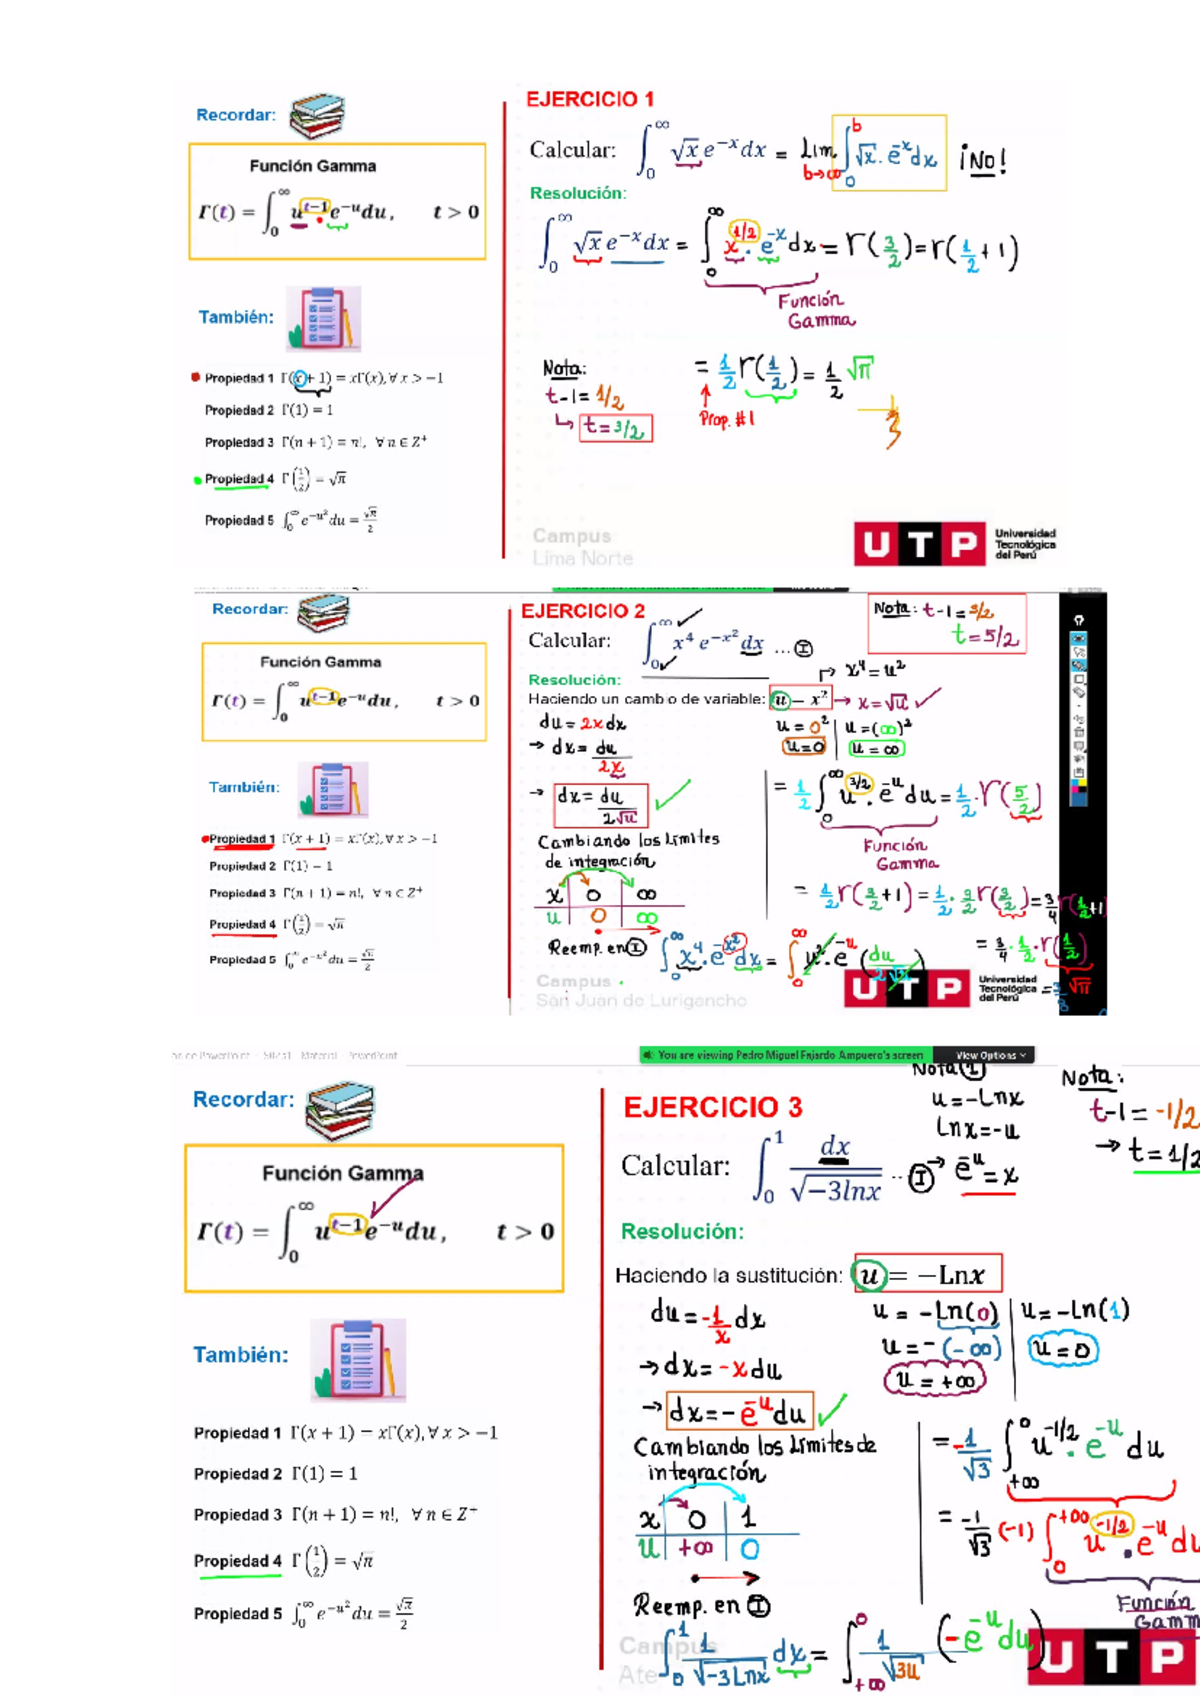 Recordar:
Función Gamma
Γ(t) = ∫₀^∞ u^(t−1) e^(−u) du, t > 0
También:
Propiedad 1 Γ(x + 1) = xΓ(x), ∀ x > −1
Propiedad 2 Γ(1) = 1
Propiedad 3 Γ(n + 1) = n!, ∀ n ∈ Z⁺
Propiedad 4 Γ(1/2) = √π
Propiedad 5 ∫₀^∞ e^(−u²) du = √π/2
EJERCICIO 1
Calcular: ∫₀^∞ √x e^(−x) dx = Lim b→∞ ∫₀^b √x · e^(−x) dx ¡No!
Resolución:
∫₀^∞ √x e^(−x) dx = ∫₀^∞ x^(1/2) · e^(−x) dx = Γ(3/2) = Γ(1/2 + 1)
Función
Gamma
Nota:
t-1 = 1/2
↳ t = 3/2
= 1/2 Γ(1/2) = 1/2 √π
Prop. #1
Campus
Lima Norte
UTP Universidad
Tecnológica
del Perú
Recordar:
Función Gamma
Γ(t) = ∫₀^∞ u^(t−1) e^(−u) du, t > 0
También:
Propiedad 1 Γ(x + 1) = xΓ(x), ∀ x > −1
Propiedad 2 Γ(1) = 1
Propiedad 3 Γ(n + 1) = n!, ∀ n ∈ Z⁺
Propiedad 4 Γ(1/2) = √π
Propiedad 5 ∫₀^∞ e^(−u²) du = √π/2
EJERCICIO 2
Nota: t-1 = 3/2
t = 5/2
Calcular: ∫₀^∞ x⁴ e^(−x²) dx ... I
→ x⁴ = u²
Resolución:
Haciendo un cambio de variable: u = x² → x = √u
du = 2x dx
→ dx = du/2x
→ dx = du/2√u
u = 0² | u = (∞)²
u = 0 | u = ∞
Cambiando los Límites
de integración
x | 0 | ∞
u | 0 | ∞
Reemp. en I ∫₀^∞ x⁴ · e^(−x²) dx = ∫₀^∞ u² · e^(−u) (du/2√u)
= 1/2 ∫₀^∞ u^(3/2) · e^(−u) du = 1/2 · Γ(5/2)
Función
Gamma
= 1/2 Γ(3/2 + 1) = 1/2 · 3/2 Γ(3/2) = 3/4 Γ(1/2 + 1)
= 3/4 · 1/2 · Γ(1/2)
= 3/8 √π
Campus
San Juan de Lurigancho
UTP Universidad
Tecnológica
del Perú
You are viewing Pedro Miguel Fajardo Ampuero's screen View Options
Recordar:
Función Gamma
Γ(t) = ∫₀^∞ u^(t−1) e^(−u) du, t > 0
También:
Propiedad 1 Γ(x + 1) = xΓ(x), ∀ x > −1
Propiedad 2 Γ(1) = 1
Propiedad 3 Γ(n + 1) = n!, ∀ n ∈ Z⁺
Propiedad 4 Γ(1/2) = √π
Propiedad 5 ∫₀^∞ e^(−u²) du = √π/2
EJERCICIO 3
Nota 1
u = -Lnx
Lnx = -u
→ e^(−u) = x
Nota:
t-1 = -1/2
→ t = 1/2
Calcular: ∫₀¹ dx/√(−3lnx) .. I
Resolución:
Haciendo la sustitución: u = −Lnx
du = -1/x dx
→ dx = -x du
→ dx = -e^(−u) du
u = -Ln(0) | u = -Ln(1)
u = -(-∞) | u = 0
u = +∞
Cambiando los Límites de
integración
x | 0 | 1
u | +∞ | 0
Reemp. en I
∫₀¹ 1/√(-3Lnx) dx = ∫₊∞^0 1/√(3u) (-e^(−u) du)
= -1/√3 ∫₊∞^0 u^(-1/2) · e^(−u) du
= -1/√3 (-1) ∫₀^(+∞) u^(-1/2) · e^(−u) du
Función
Gamm
Campus
Ate
UTP